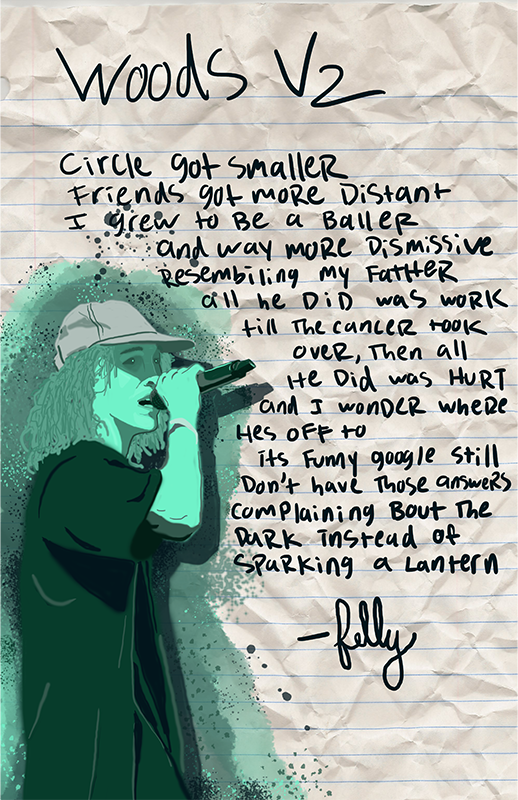 Woods V2
Circle got smaller
Friends got more Distant
I grew to Be a Baller
and way more Dismissive
Resembiling my Father
all he DiD was work
till The cancer took
over, Then all
He Did was HURT
and I wonder where
Hes off to
its funny google still
Don't have Those answers
complaining Bout The
Dark instead of
Sparking a Lantern
- felly